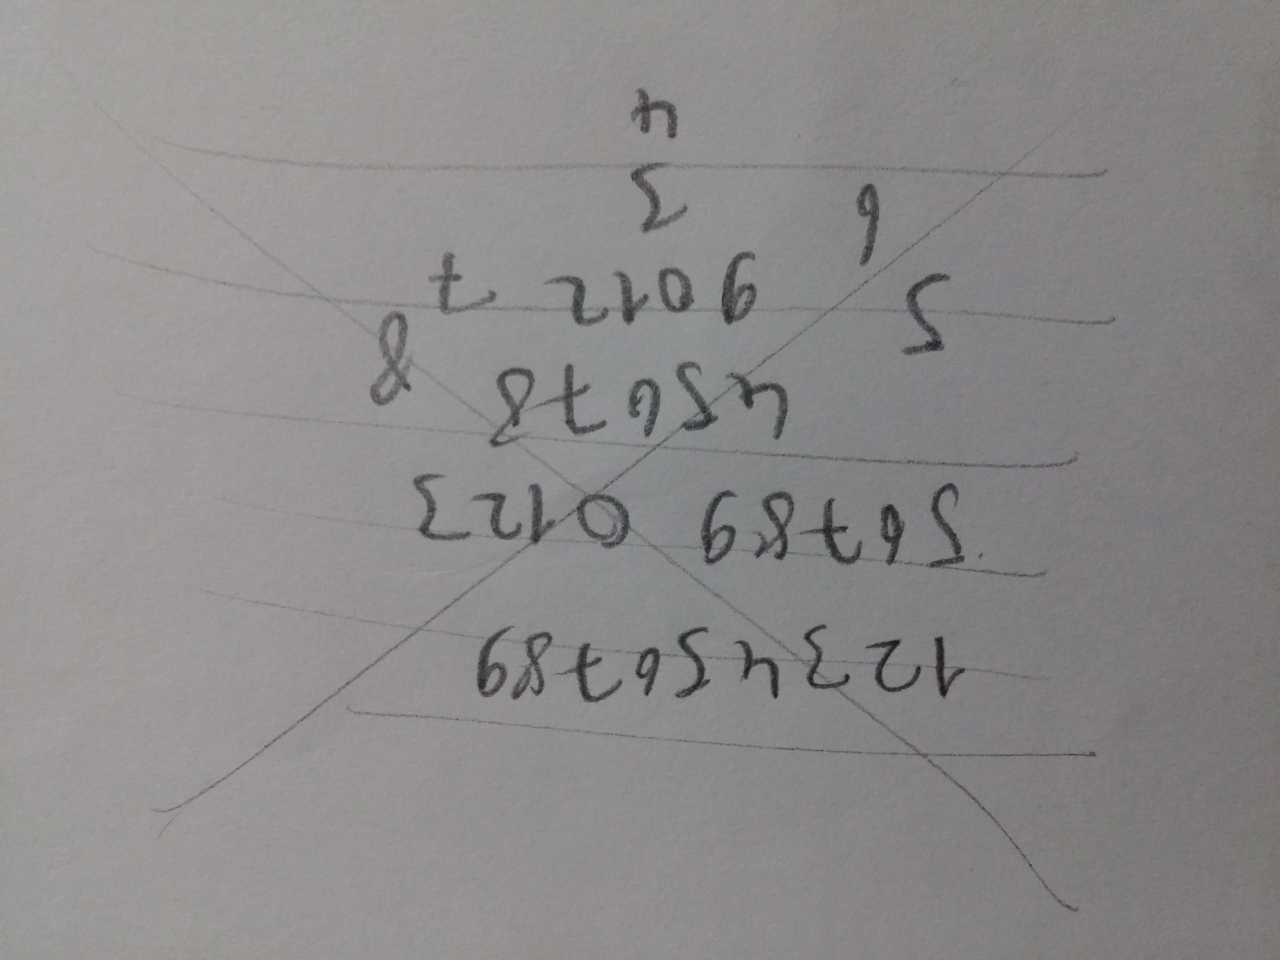 123456789
56789 0123
45678
8
5 9012 7
6 3
4